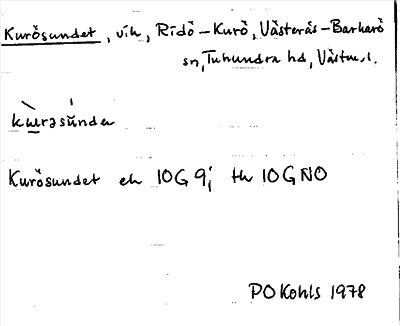 Kurösundet, vik, Ridö-Kurö, Västerås-Barkarö
sn, Tuhundra hd, Västm. l.
kurəsúndeı
Kurösundet ek 10G 9i th 10G NO
PO Kohls 1978